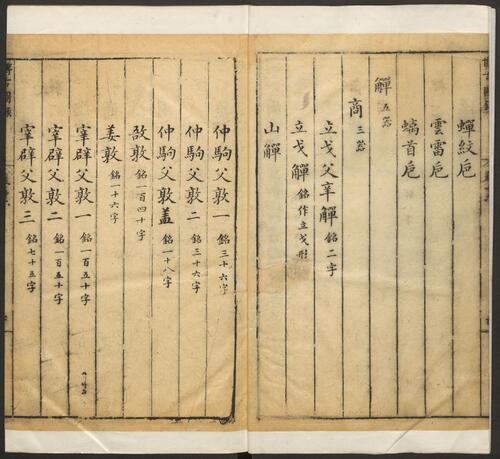 蟬紋巵
雲雷巵
螭首巵
觶 五器
商 三器
立戈父辛觶 銘二字
立戈觶 銘作立戈形
山觶
仲駒父敦一 銘三十六字
仲駒父敦二 銘三十六字
仲駒父敦蓋 銘一十八字
敔敦 銘一百四十字
姜敦 銘一十六字
宰辟父敦一 銘一百五十字
宰辟父敦二 銘一百五十字
宰辟父敦三 銘七十五字